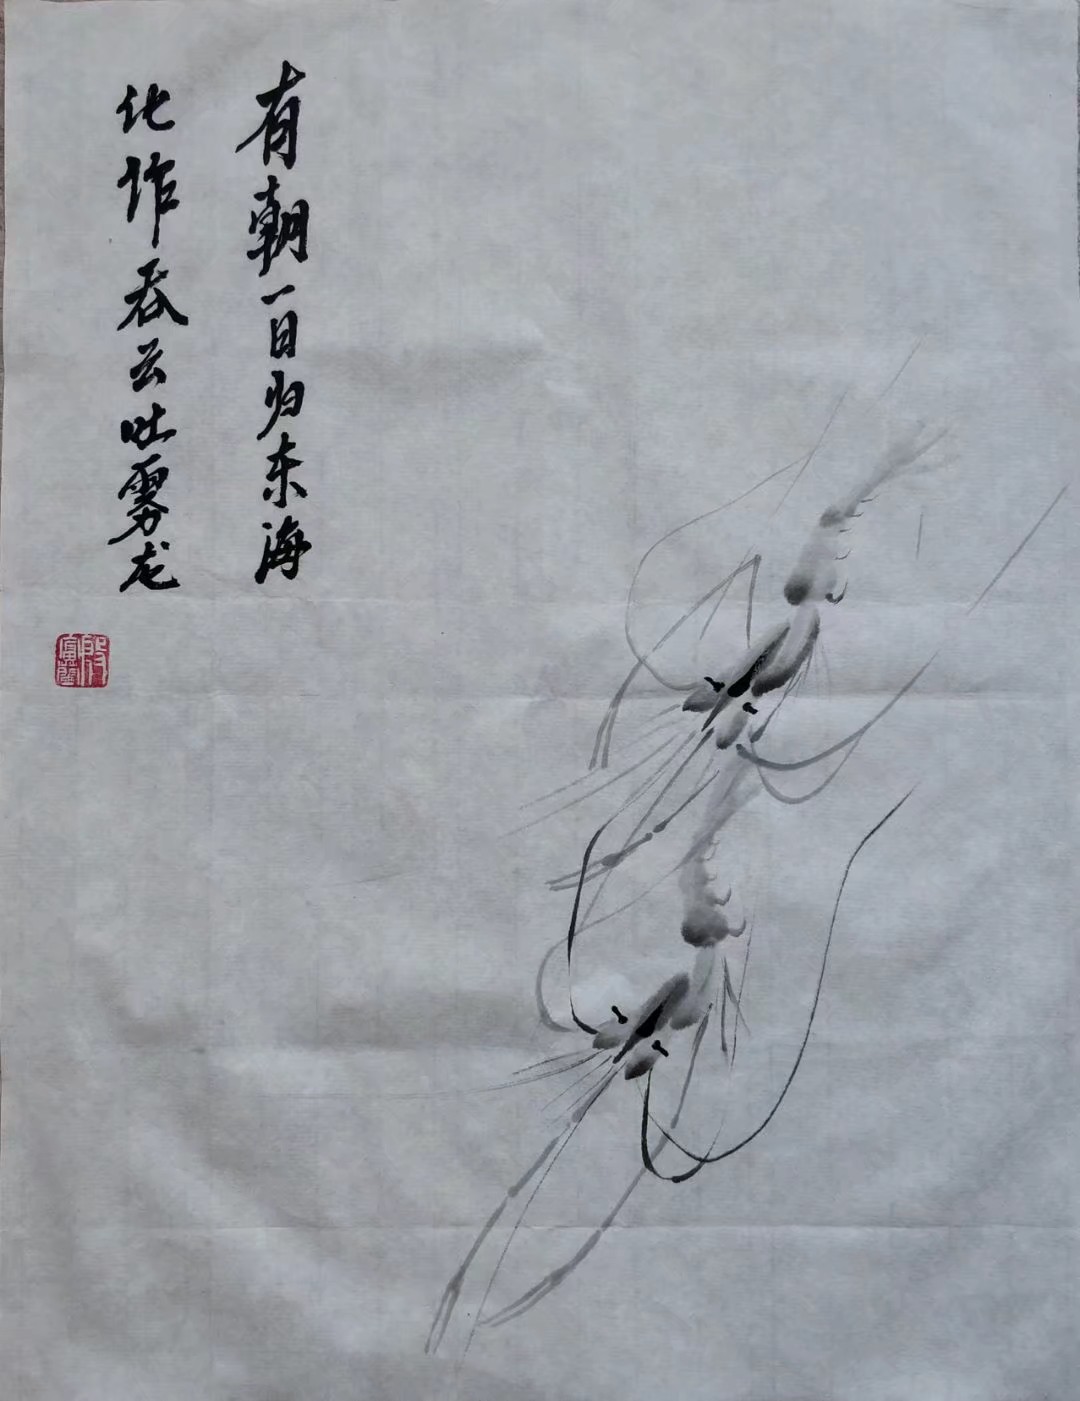 有朝一日归东海
化作吞云吐雾龙